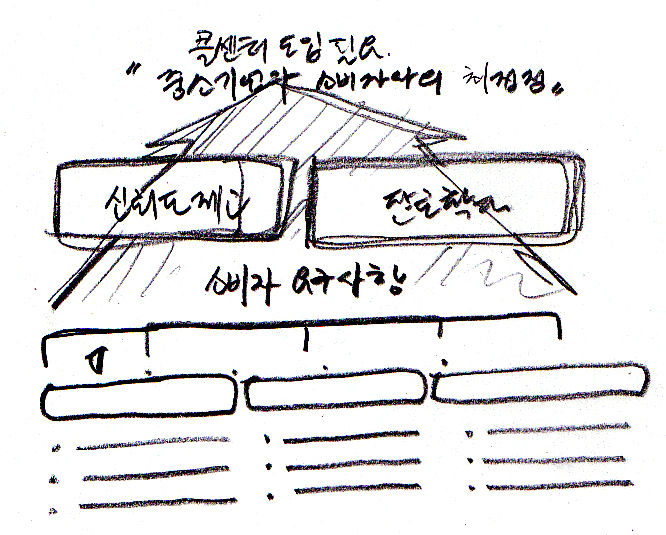 콜센터 도입 필요.
"중소기업과 소비자와의 최접점"
신뢰도 제고 판로확보
소비자 요구사항